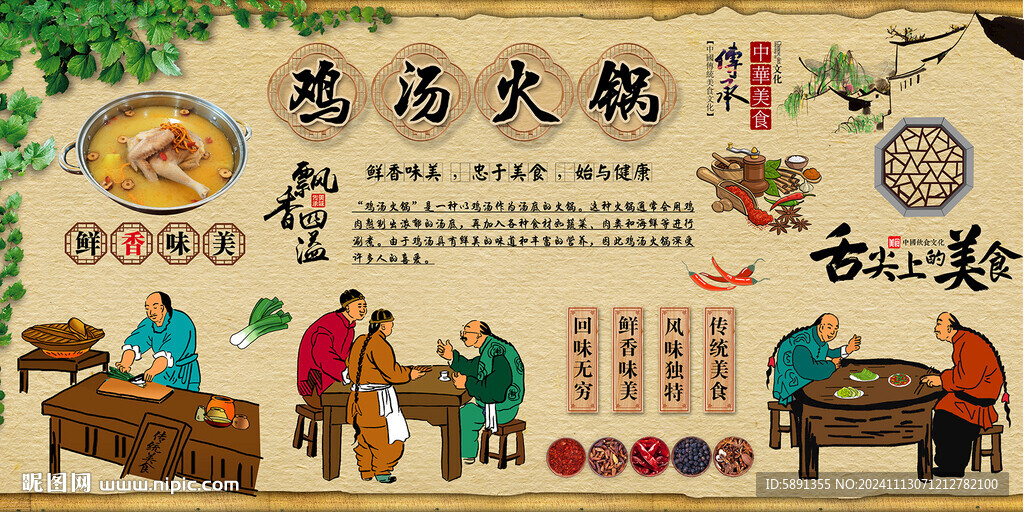 鸡汤火锅
【中國傳統美食文化】
傳承
中華美食
文化
飘香四溢
美味
鲜香味美，忠于美食，始与健康
“鸡汤火锅”是一种以鸡汤作为汤底的火锅。这种火锅通常会用鸡
肉熬制出浓郁的汤底，再加入各种食材如蔬菜、肉类和海鲜等进行
涮煮。由于鸡汤具有鲜美的味道和丰富的营养，因此鸡汤火锅深受
许多人的喜爱。
鲜香味美
美食
中國飲食文化
舌尖上的美食
回味无穷
鲜香味美
风味独特
传统美食
传统美食
昵图网 www.nipic.com
ID:5891355 NO:20241113071212782100